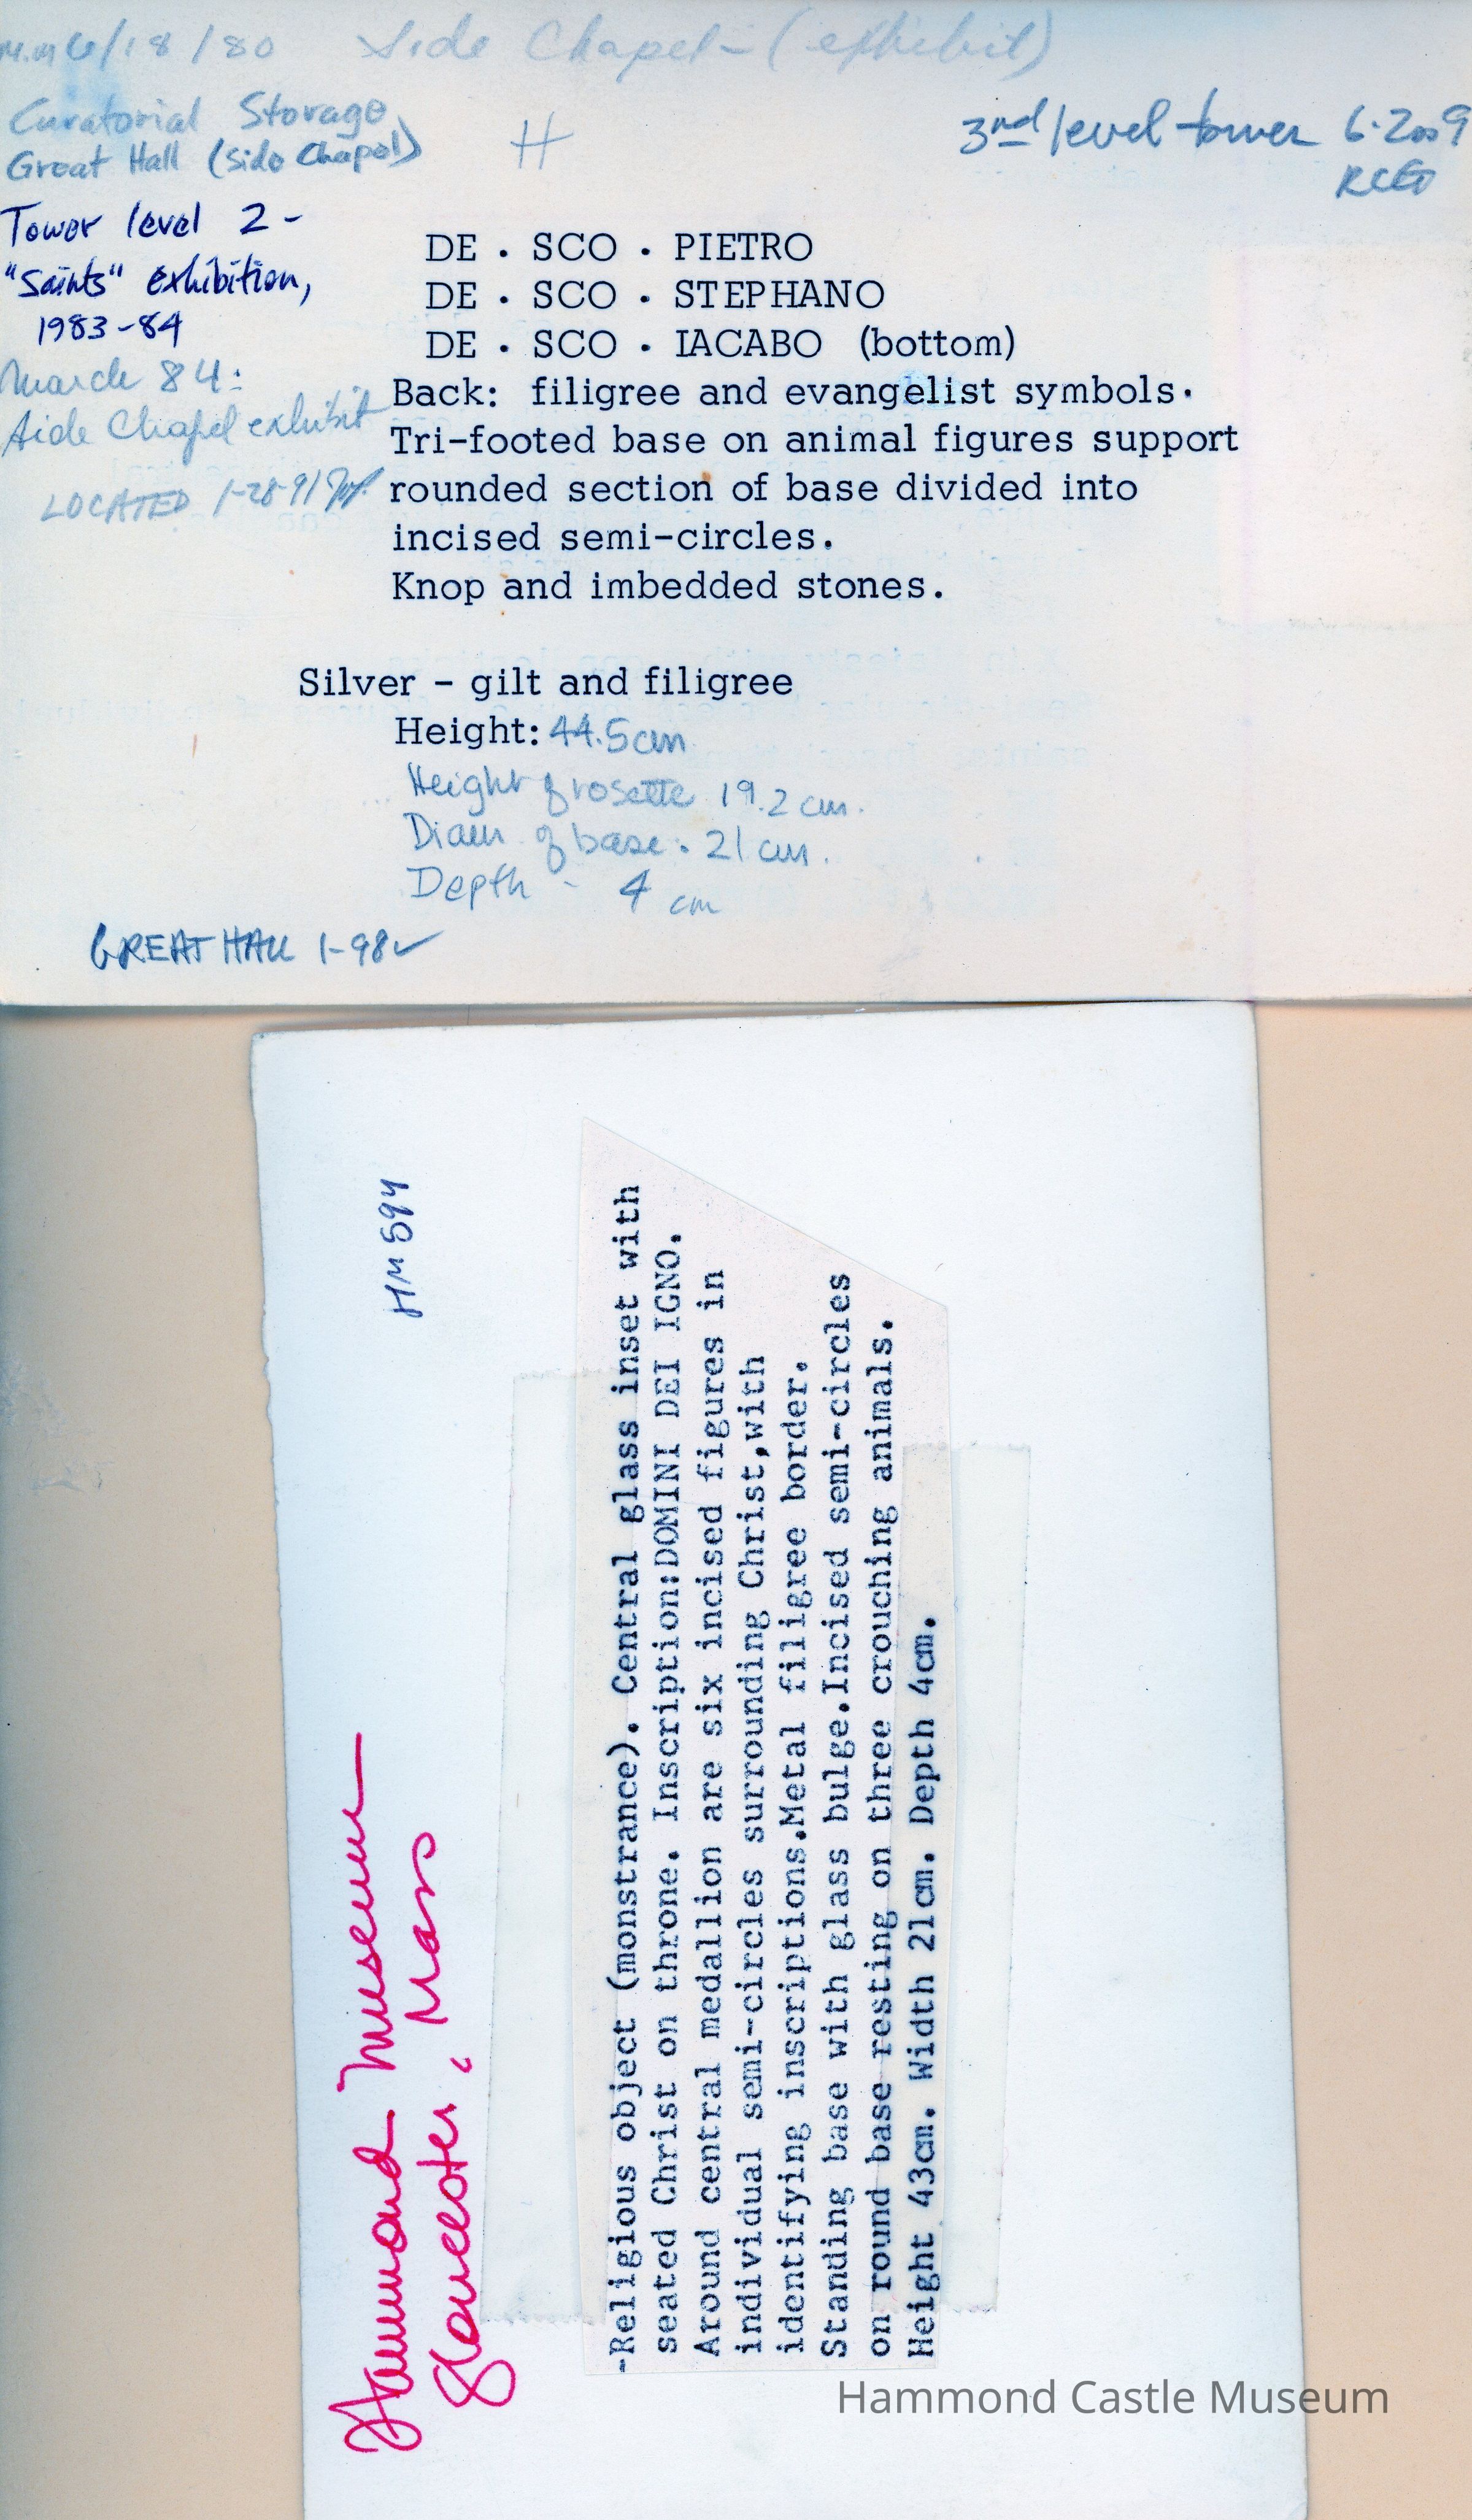 M.M 6/18/80 Side Chapel - (exhibit)
Curatorial Storage
Great Hall (Side Chapel)
H
3rd level tower 6·2009
Tower level 2 -
"Saints" exhibition,
1983-84
March 84:
Side Chapel exhibit
LOCATED 1-28-91
DE . SCO . PIETRO
DE . SCO . STEPHANO
DE . SCO . IACABO (bottom)
Back: filigree and evangelist symbols.
Tri-footed base on animal figures support
rounded section of base divided into
incised semi-circles.
Knop and imbedded stones.
Silver - gilt and filigree
Height: 44.5cm
Height of rosette 19.2 cm.
Diam of base. 21 cm.
Depth - 4 cm
GREAT HALL 1-98✓
HM 594
Hammond Museum
Gloucester, Mass
-Religious object (monstrance). Central glass inset with
seated Christ on throne. Inscription:DOMINI DEI IGNO.
Around central medallion are six incised figures in
individual semi-circles surrounding Christ,with
identifying inscriptions.Metal filigree border.
Standing base with glass bulge.Incised semi-circles
on round base resting on three crouching animals.
Height 43cm. Width 21cm. Depth 4cm.
Hammond Castle Museum